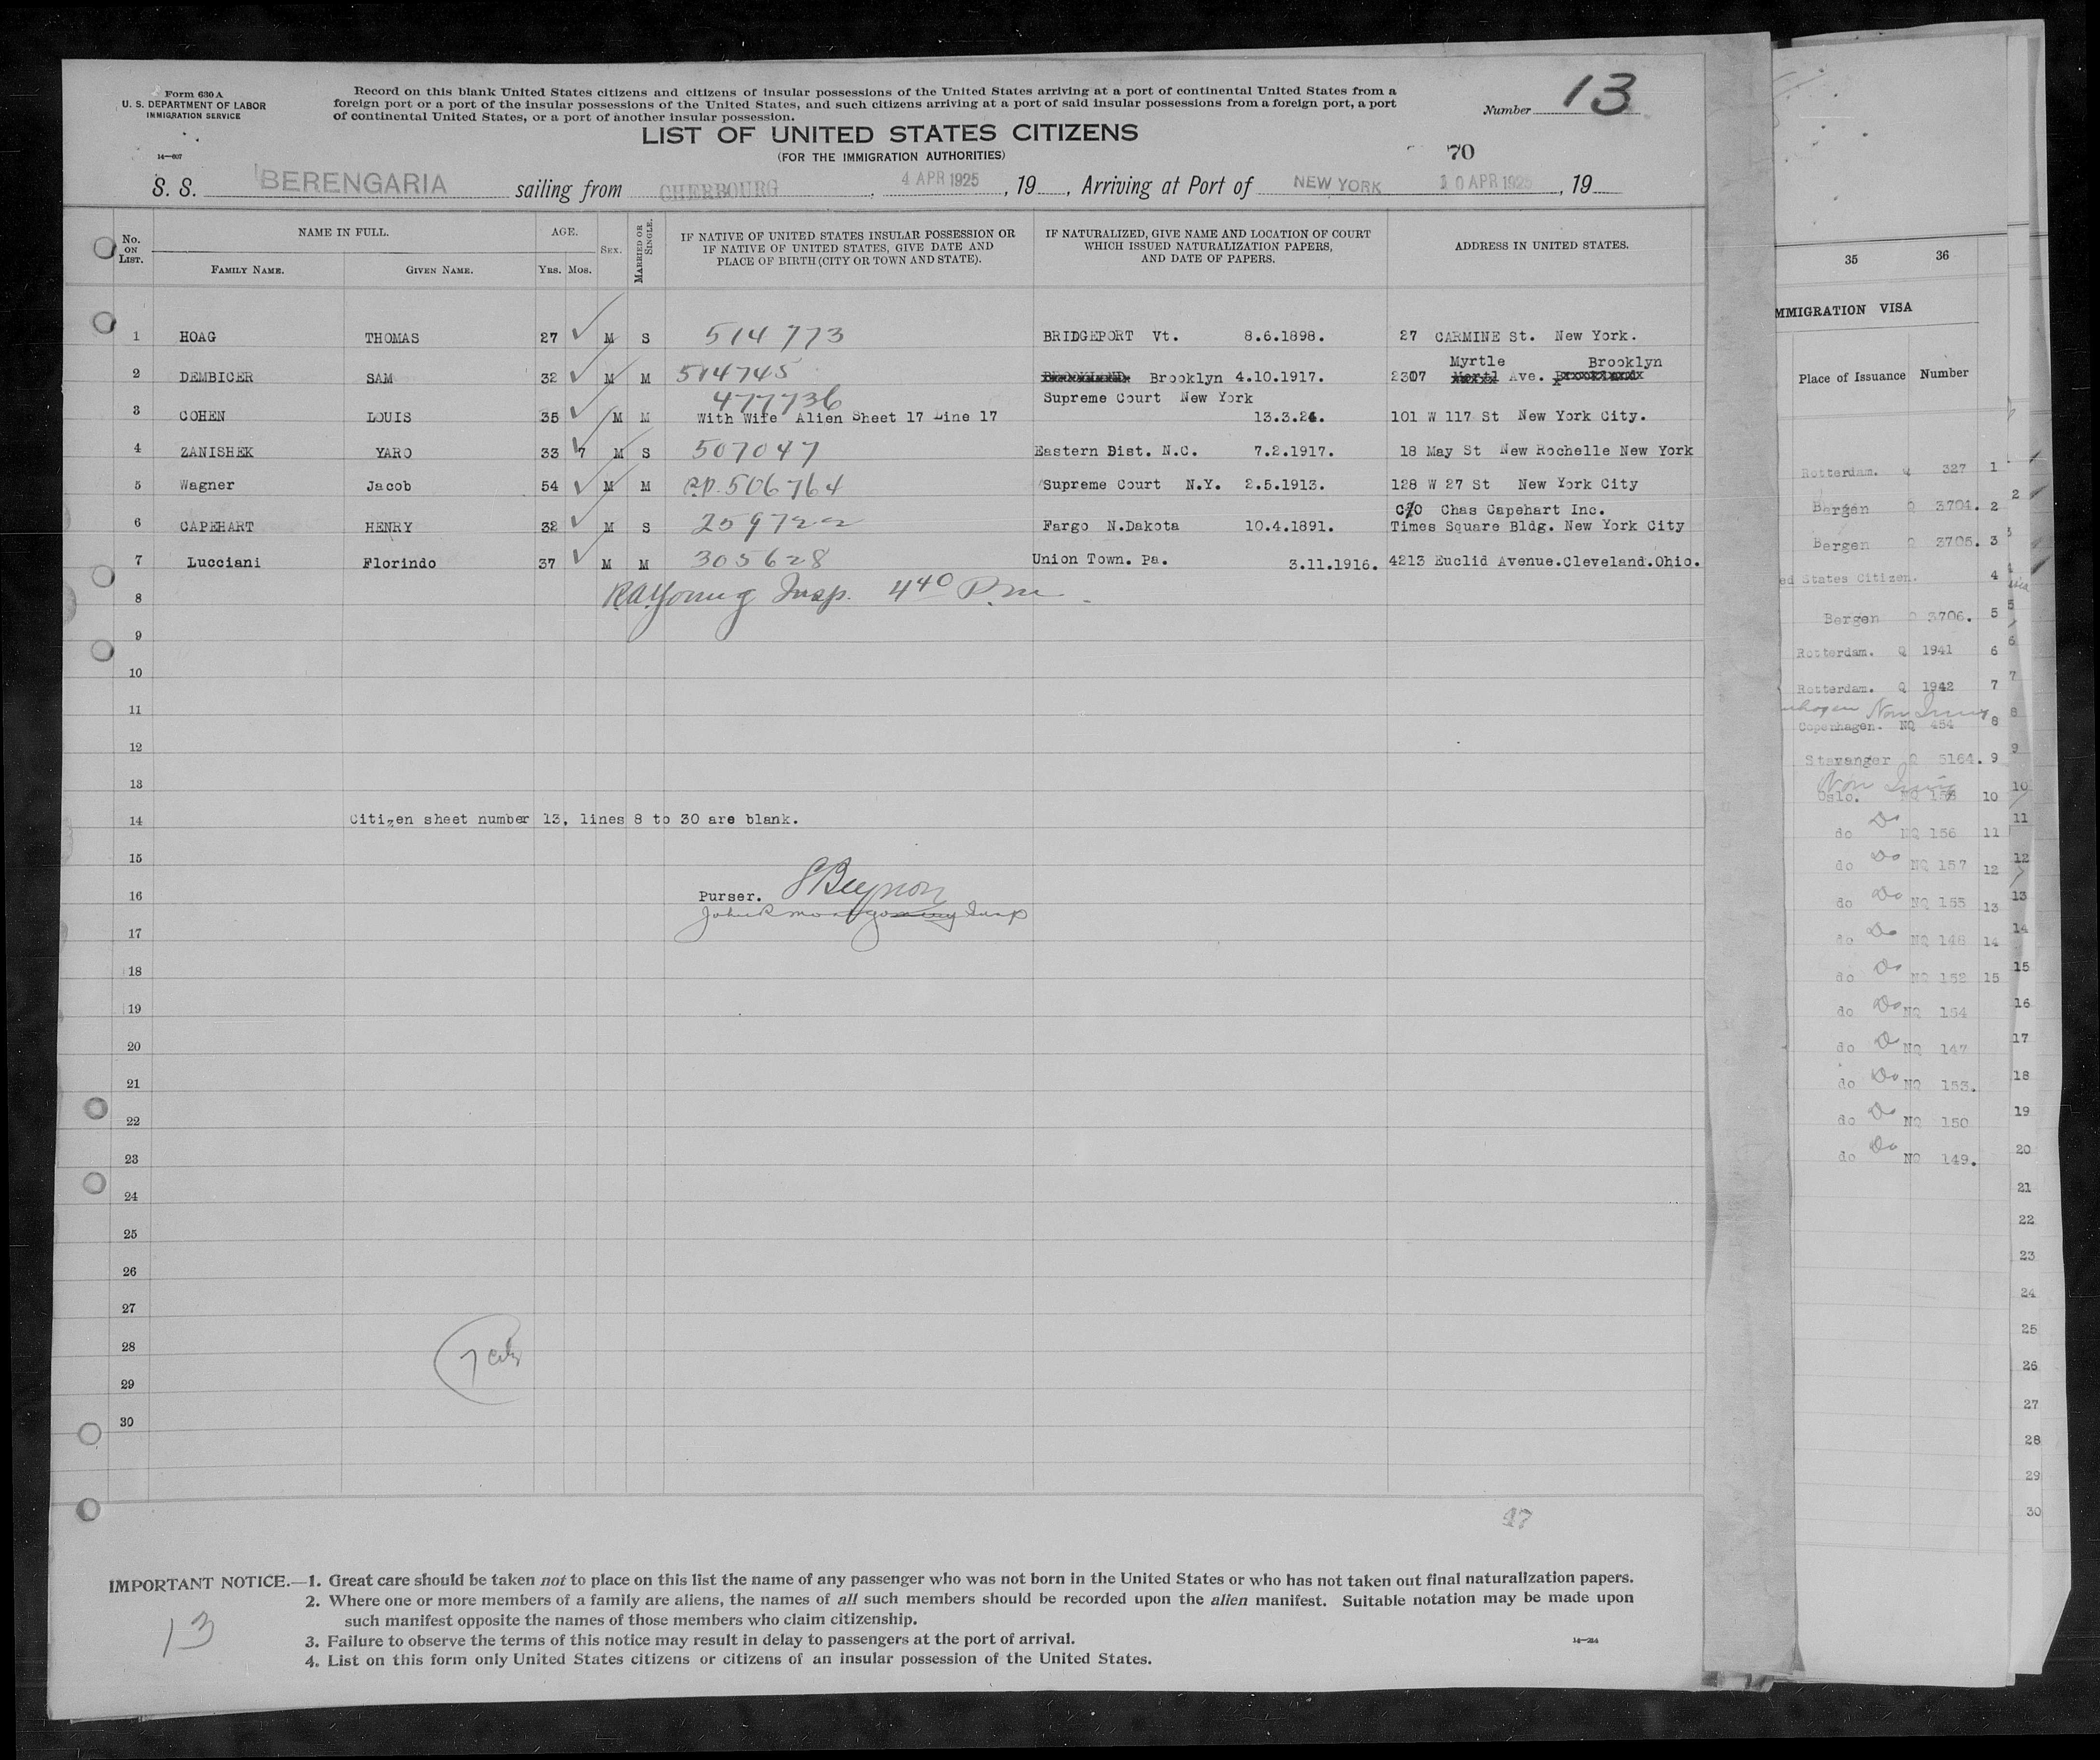 Form 630 A
U. S. DEPARTMENT OF LABOR
IMMIGRATION SERVICE
14—607
Record on this blank United States citizens and citizens of insular possessions of the United States arriving at a port of continental United States from a
foreign port or a port of the insular possessions of the United States, and such citizens arriving at a port of said insular possessions from a foreign port, a port
of continental United States, or a port of another insular possession.
Number 13
LIST OF UNITED STATES CITIZENS
(FOR THE IMMIGRATION AUTHORITIES)
70
S. S. BERENGARIA sailing from CHERBOURG, 4 APR 1925, 19, Arriving at Port of NEW YORK 10 APR 1925, 19
No. ON LIST.
NAME IN FULL.
FAMILY NAME. GIVEN NAME.
AGE.
YRS. MOS.
SEX.
MARRIED OR SINGLE.
IF NATIVE OF UNITED STATES INSULAR POSSESSION OR
IF NATIVE OF UNITED STATES, GIVE DATE AND
PLACE OF BIRTH (CITY OR TOWN AND STATE).
IF NATURALIZED, GIVE NAME AND LOCATION OF COURT
WHICH ISSUED NATURALIZATION PAPERS,
AND DATE OF PAPERS.
ADDRESS IN UNITED STATES.
1 HOAG THOMAS 27 M S 514773 BRIDGEPORT Vt. 8.6.1898. 27 CARMINE St. New York.
Myrtle Brooklyn
2 DEMBICER SAM 32 M M 514745 Brooklyn 4.10.1917. 2307 Ave.
477736 Supreme Court New York
3 COHEN LOUIS 35 M M With Wife Alien Sheet 17 Line 17 13.3.24. 101 W 117 St New York City.
4 ZANISHEK YARO 33 7 M S 507047 Eastern Dist. N.C. 7.2.1917. 18 May St New Rochelle New York
5 Wagner Jacob 54 M M 506764 Supreme Court N.Y. 2.5.1913. 128 W 27 St New York City
C/O Chas Capehart Inc.
6 CAPEHART HENRY 32 M S 259722 Fargo N.Dakota 10.4.1891. Times Square Bldg. New York City
7 Lucciani Florindo 37 M M 305628 Union Town. Pa. 3.11.1916. 4213 Euclid Avenue.Cleveland.Ohio.
8 RAYoung Insp. 4 40 P.m.
9
10
11
12
13
14 Citizen sheet number 13, lines 8 to 30 are blank.
15
16 Purser. SBeynon
John R Montgomery Insp
17
18
19
20
21
22
23
24
25
26
27
28
29
30
47
IMPORTANT NOTICE.—1. Great care should be taken not to place on this list the name of any passenger who was not born in the United States or who has not taken out final naturalization papers.
2. Where one or more members of a family are aliens, the names of all such members should be recorded upon the alien manifest. Suitable notation may be made upon
such manifest opposite the names of those members who claim citizenship.
3. Failure to observe the terms of this notice may result in delay to passengers at the port of arrival.
4. List on this form only United States citizens or citizens of an insular possession of the United States.
13
14—214
35 36
MMIGRATION VISA
Place of Issuance Number
Rotterdam. Q 327 1
Bergen Q 3704. 2
Bergen Q 3705. 3
ed States Citizen. 4
Bergen Q 3706. 5
Rotterdam. Q 1941 6
Rotterdam. Q 1942 7
Copenhagen. NQ 454 8
Stavanger Q 5164. 9
Oslo. NQ 10
do Do NQ 156 11
do Do NQ 157 12
do Do NQ 155 13
do Do NQ 148 14
do Do NQ 152 15
do Do NQ 154
do Do NQ 147
do Do NQ 153.
do Do NQ 150
do Do NQ 149.
2
5
6
7
8
9
10
11
12
13
14
15
16
17
18
19
20
21
22
23
24
25
26
27
28
29
30